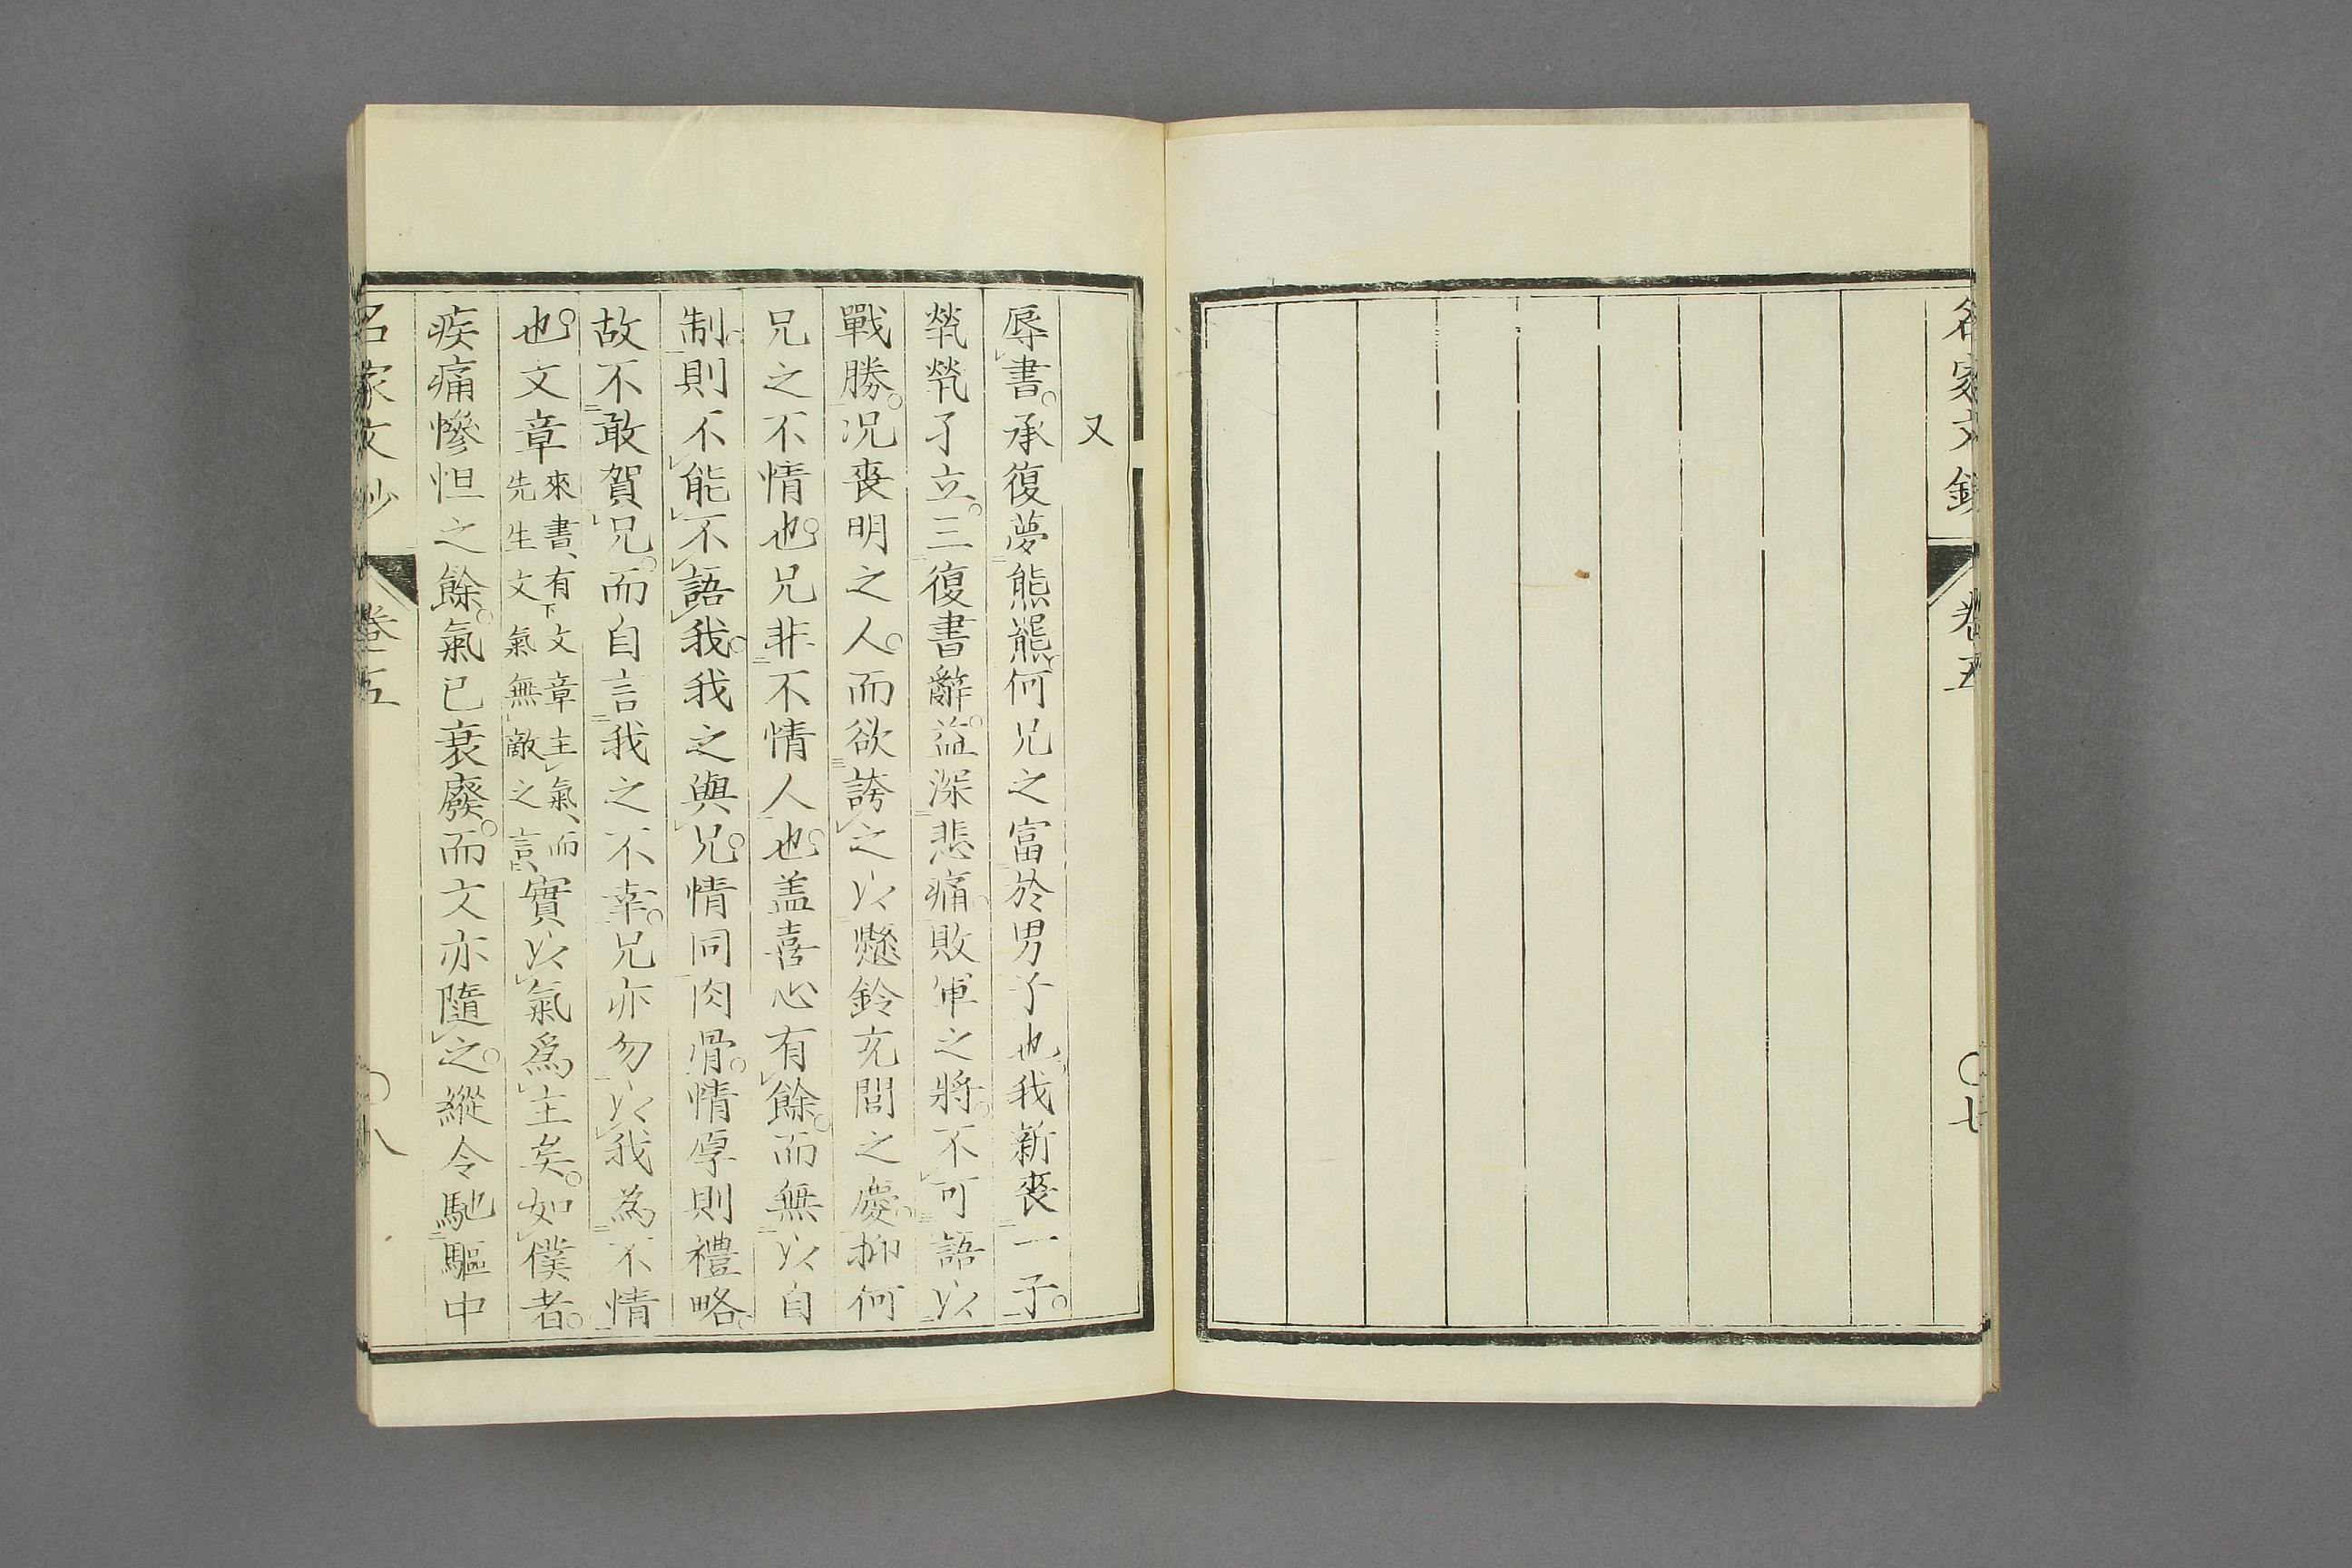 名家文鈔
卷五
〇七
又
辱書。承復夢熊羆何兄之富於男子也我新喪一子。
煢煢孑立。三復書辭。益深悲痛。敗軍之將。不可語以
戰勝。况喪明之人。而欲誇之以懸鈴充閭之慶。抑何
兄之不情也。兄非不情人也。盖喜心有餘。而無以自
制。則不能不語我。我之與兄。情同肉骨。情厚則禮略。
故不敢賀兄。而自言我之不幸。兄亦勿以我為不情
也。文章
來書、有下文章主氣、而
先生文氣無敵之言、
實以氣爲主矣。如僕者。
疾痛慘怛之餘。氣已衰廢。而文亦隨之。縱令馳驅中
名家文鈔
卷五
〇八